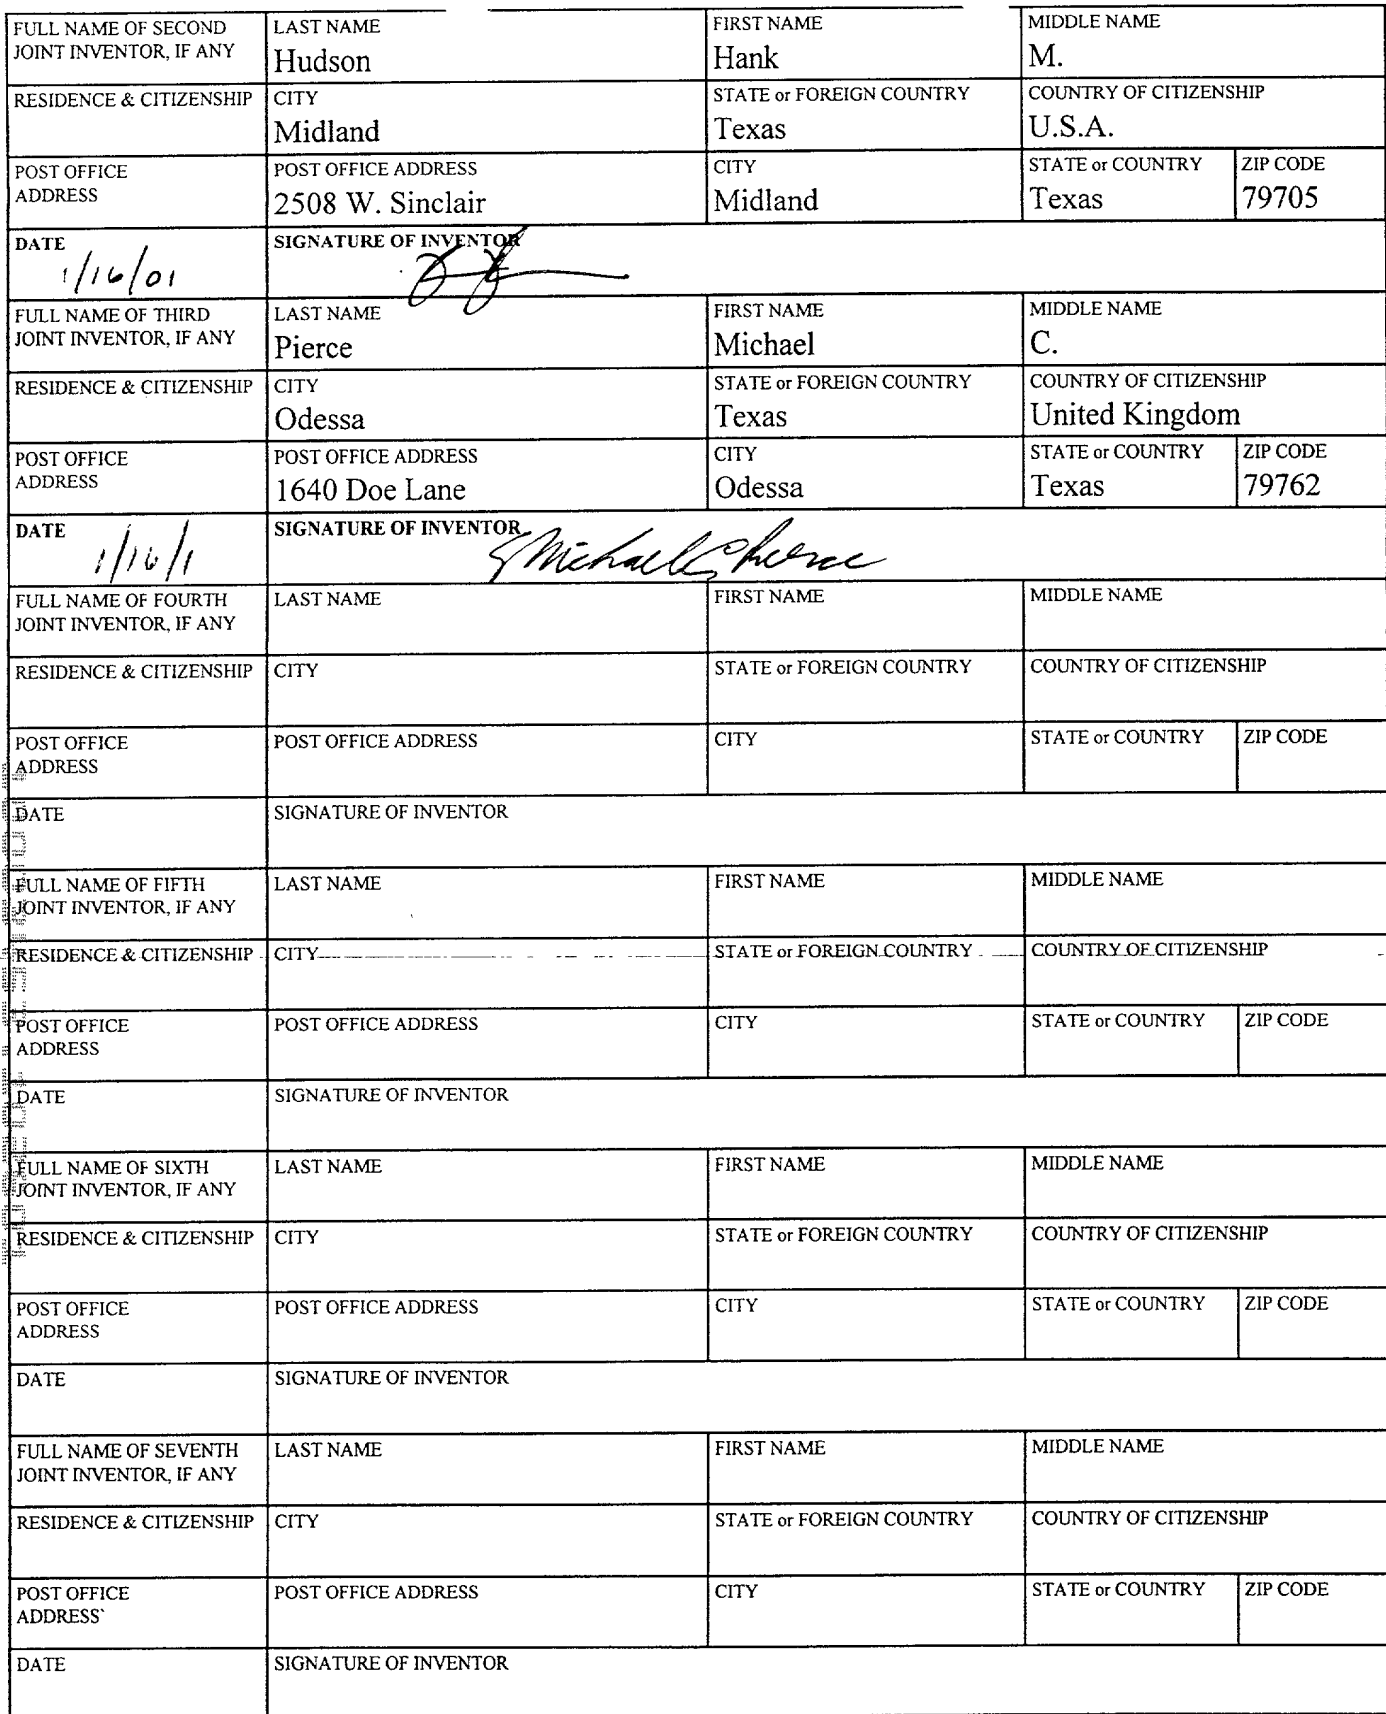 FULL NAME OF SECOND JOINT INVENTOR, IF ANY LAST NAME Hudson FIRST NAME Hank MIDDLE NAME M.
RESIDENCE & CITIZENSHIP CITY Midland STATE or FOREIGN COUNTRY Texas COUNTRY OF CITIZENSHIP U.S.A.
POST OFFICE ADDRESS POST OFFICE ADDRESS 2508 W. Sinclair CITY Midland STATE or COUNTRY Texas ZIP CODE 79705
DATE 1/16/01 SIGNATURE OF INVENTOR
FULL NAME OF THIRD JOINT INVENTOR, IF ANY LAST NAME Pierce FIRST NAME Michael MIDDLE NAME C.
RESIDENCE & CITIZENSHIP CITY Odessa STATE or FOREIGN COUNTRY Texas COUNTRY OF CITIZENSHIP United Kingdom
POST OFFICE ADDRESS POST OFFICE ADDRESS 1640 Doe Lane CITY Odessa STATE or COUNTRY Texas ZIP CODE 79762
DATE 1/16/1 SIGNATURE OF INVENTOR Michael C Pierce
FULL NAME OF FOURTH JOINT INVENTOR, IF ANY LAST NAME FIRST NAME MIDDLE NAME
RESIDENCE & CITIZENSHIP CITY STATE or FOREIGN COUNTRY COUNTRY OF CITIZENSHIP
POST OFFICE ADDRESS POST OFFICE ADDRESS CITY STATE or COUNTRY ZIP CODE
DATE SIGNATURE OF INVENTOR
FULL NAME OF FIFTH JOINT INVENTOR, IF ANY LAST NAME FIRST NAME MIDDLE NAME
RESIDENCE & CITIZENSHIP CITY STATE or FOREIGN COUNTRY COUNTRY OF CITIZENSHIP
POST OFFICE ADDRESS POST OFFICE ADDRESS CITY STATE or COUNTRY ZIP CODE
DATE SIGNATURE OF INVENTOR
FULL NAME OF SIXTH JOINT INVENTOR, IF ANY LAST NAME FIRST NAME MIDDLE NAME
RESIDENCE & CITIZENSHIP CITY STATE or FOREIGN COUNTRY COUNTRY OF CITIZENSHIP
POST OFFICE ADDRESS POST OFFICE ADDRESS CITY STATE or COUNTRY ZIP CODE
DATE SIGNATURE OF INVENTOR
FULL NAME OF SEVENTH JOINT INVENTOR, IF ANY LAST NAME FIRST NAME MIDDLE NAME
RESIDENCE & CITIZENSHIP CITY STATE or FOREIGN COUNTRY COUNTRY OF CITIZENSHIP
POST OFFICE ADDRESS` POST OFFICE ADDRESS CITY STATE or COUNTRY ZIP CODE
DATE SIGNATURE OF INVENTOR